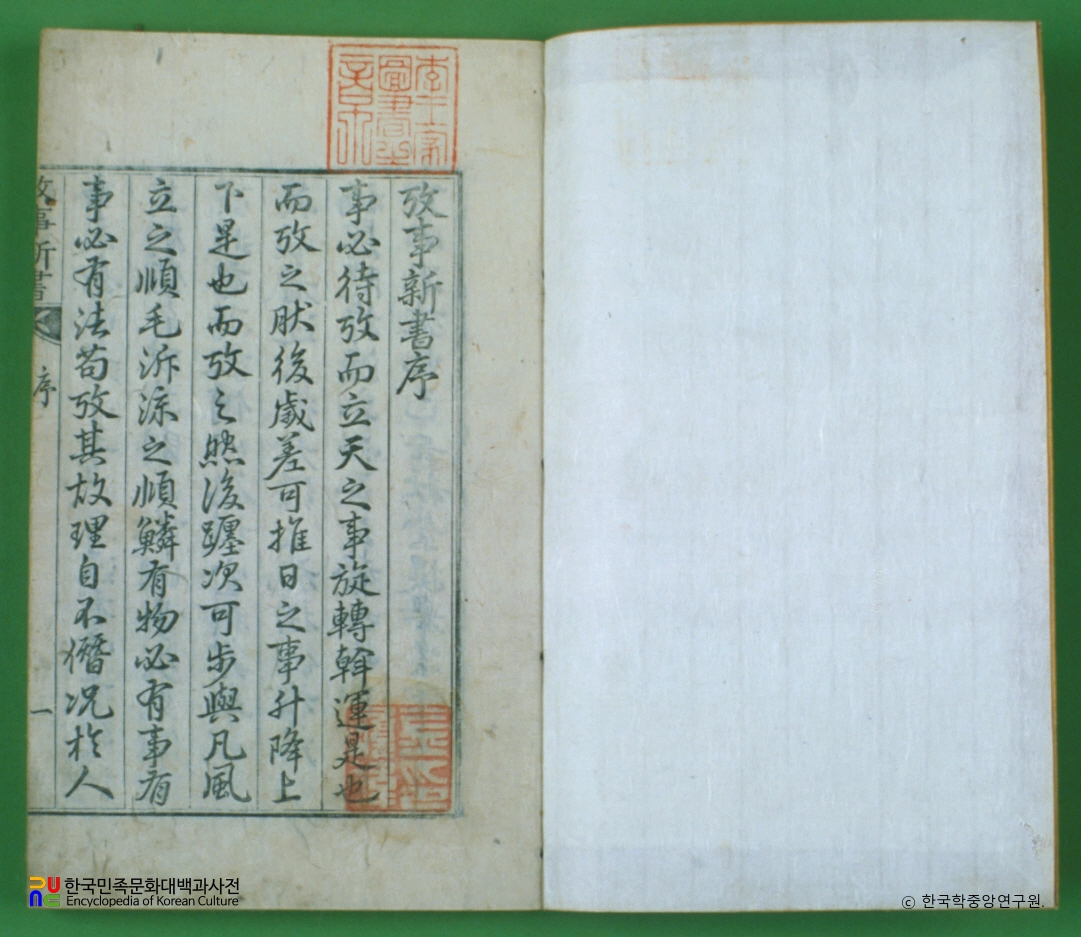 李王家
圖書之
章
攷事新書序
事必待攷而立天之事旋轉斡運是也
而攷之肰後歲差可推日之事升降上
下是也而攷之然後躔次可步與凡風
立之順毛泝之順鱗有物必有事有
事必有法苟攷其故理自不僭况扵人
攷事新書
序
一
한국민족문화대백과사전
Encyclopedia of Korean Culture
© 한국학중앙연구원.